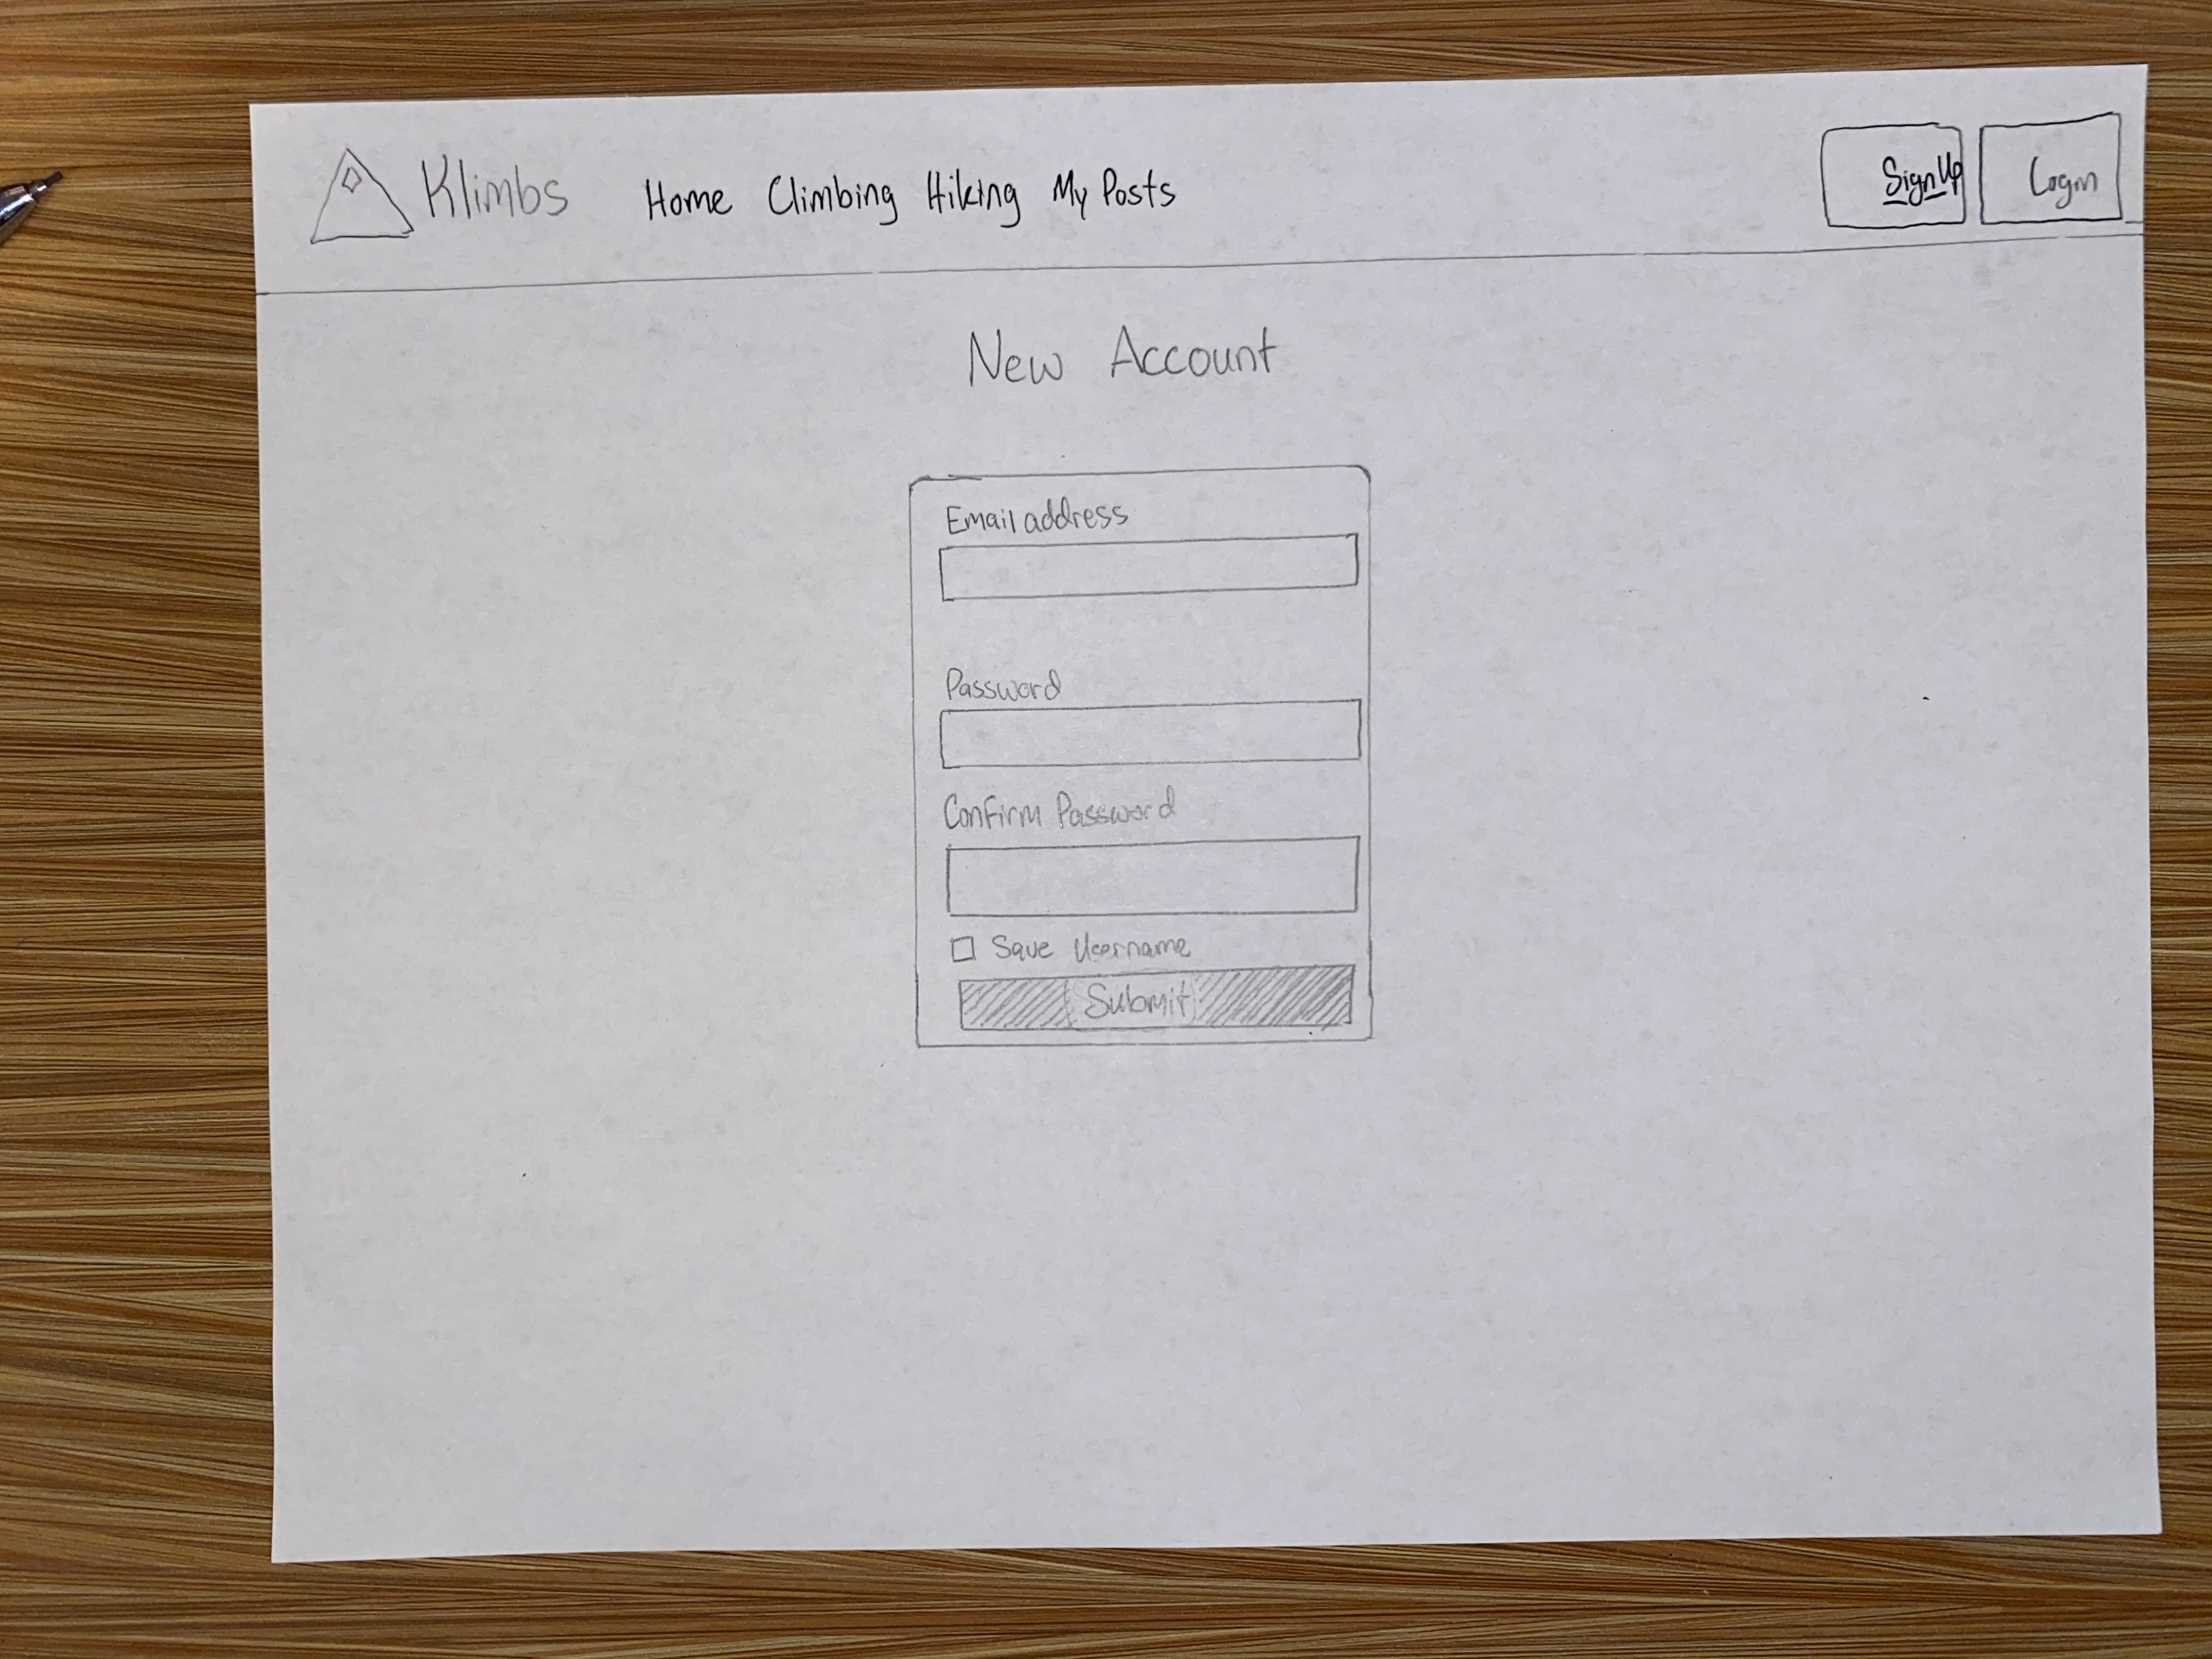 Klimbs Home Climbing Hiking My Posts Sign Up Login
New Account
Email address
Password
Confirm Password
Save Username
Submit